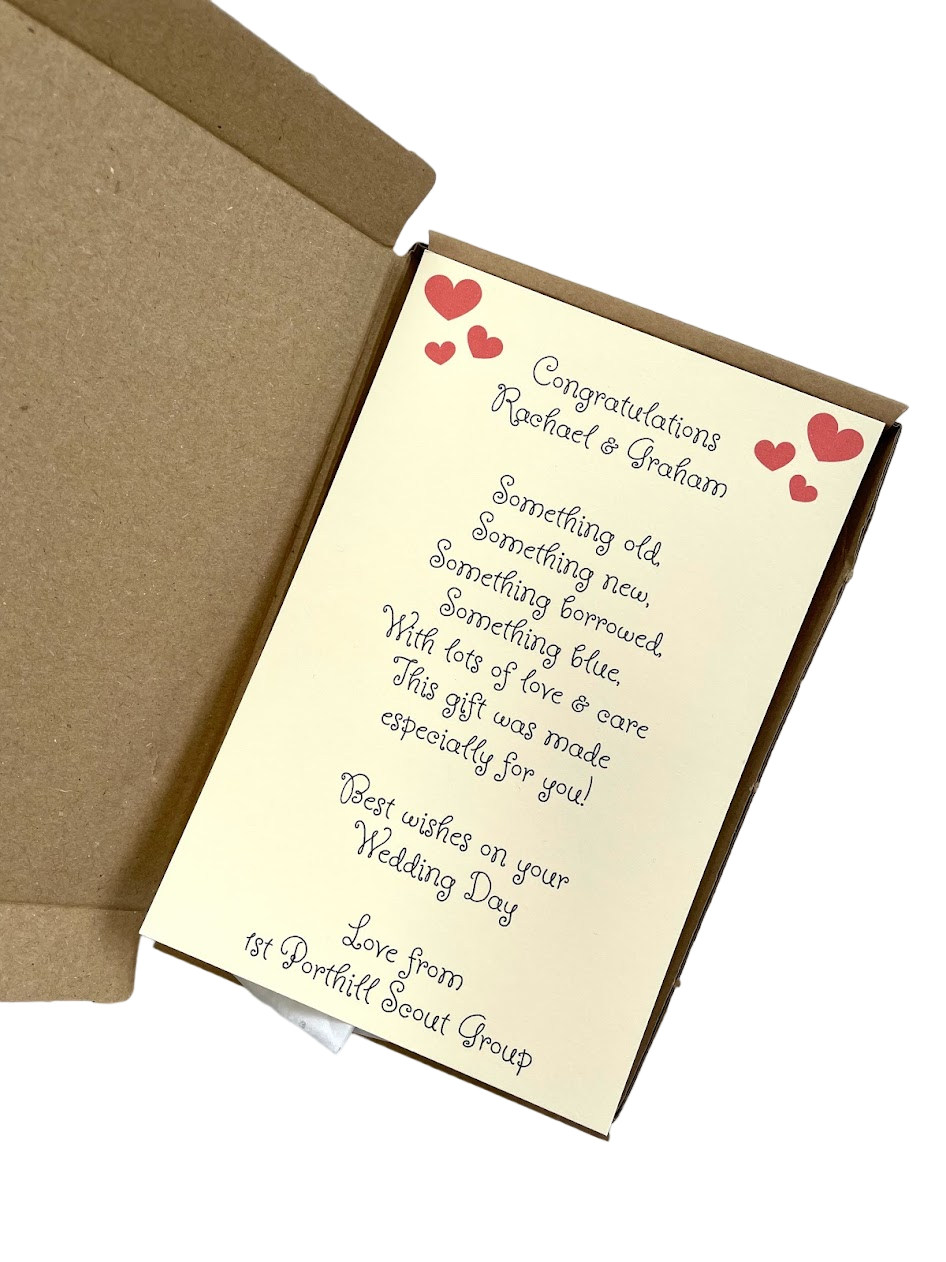 Congratulations
Rachael & Graham
Something old,
Something new,
Something borrowed,
Something blue,
With lots of love & care
This gift was made
especially for you!
Best wishes on your
Wedding Day
Love from
1st Porthill Scout Group